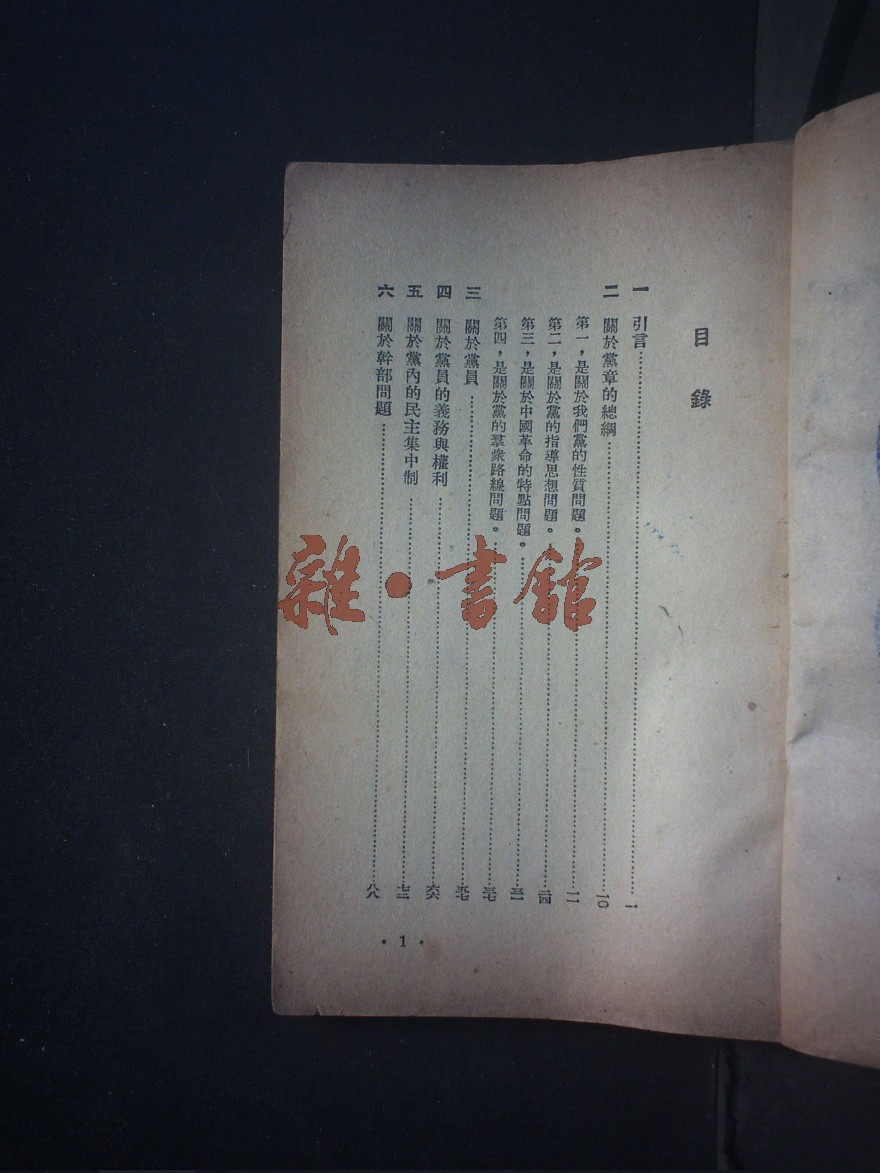 目錄
一 引言……一
二 關於黨章的總綱……一〇
第一，是關於我們黨的性質問題。……一一
第二，是關於黨的指導思想問題。……二四
第三，是關於中國革命的特點問題。……三一
第四，是關於黨的羣衆路線問題。……三七
三 關於黨員……五七
四 關於黨員的義務與權利……六六
五 關於黨內的民主集中制……七三
六 關於幹部問題……八八
·1·
雜·書館